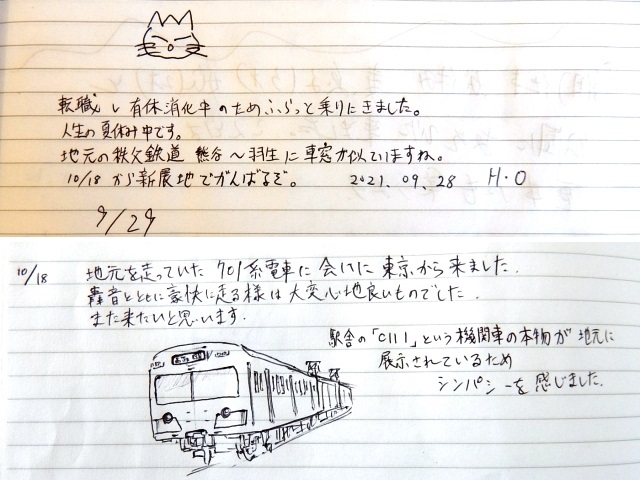 転職し有休消化中のためふらっと乗りにきました。
人生の夏休み中です。
地元の秩父鉄道 熊谷～羽生に車窓が似ていますね。
10/18から新展地でがんばるぞ。 2021.09.28 H.O
9/29
10/18 地元を走っていた701系電車に会いに東京から来ました.
轟音とともに豪快に走る様は大変心地良いものでした.
また来たいと思います.
駅舎の「C111」という機関車の本物が地元に
展示されているため
シンパシーを感じました.